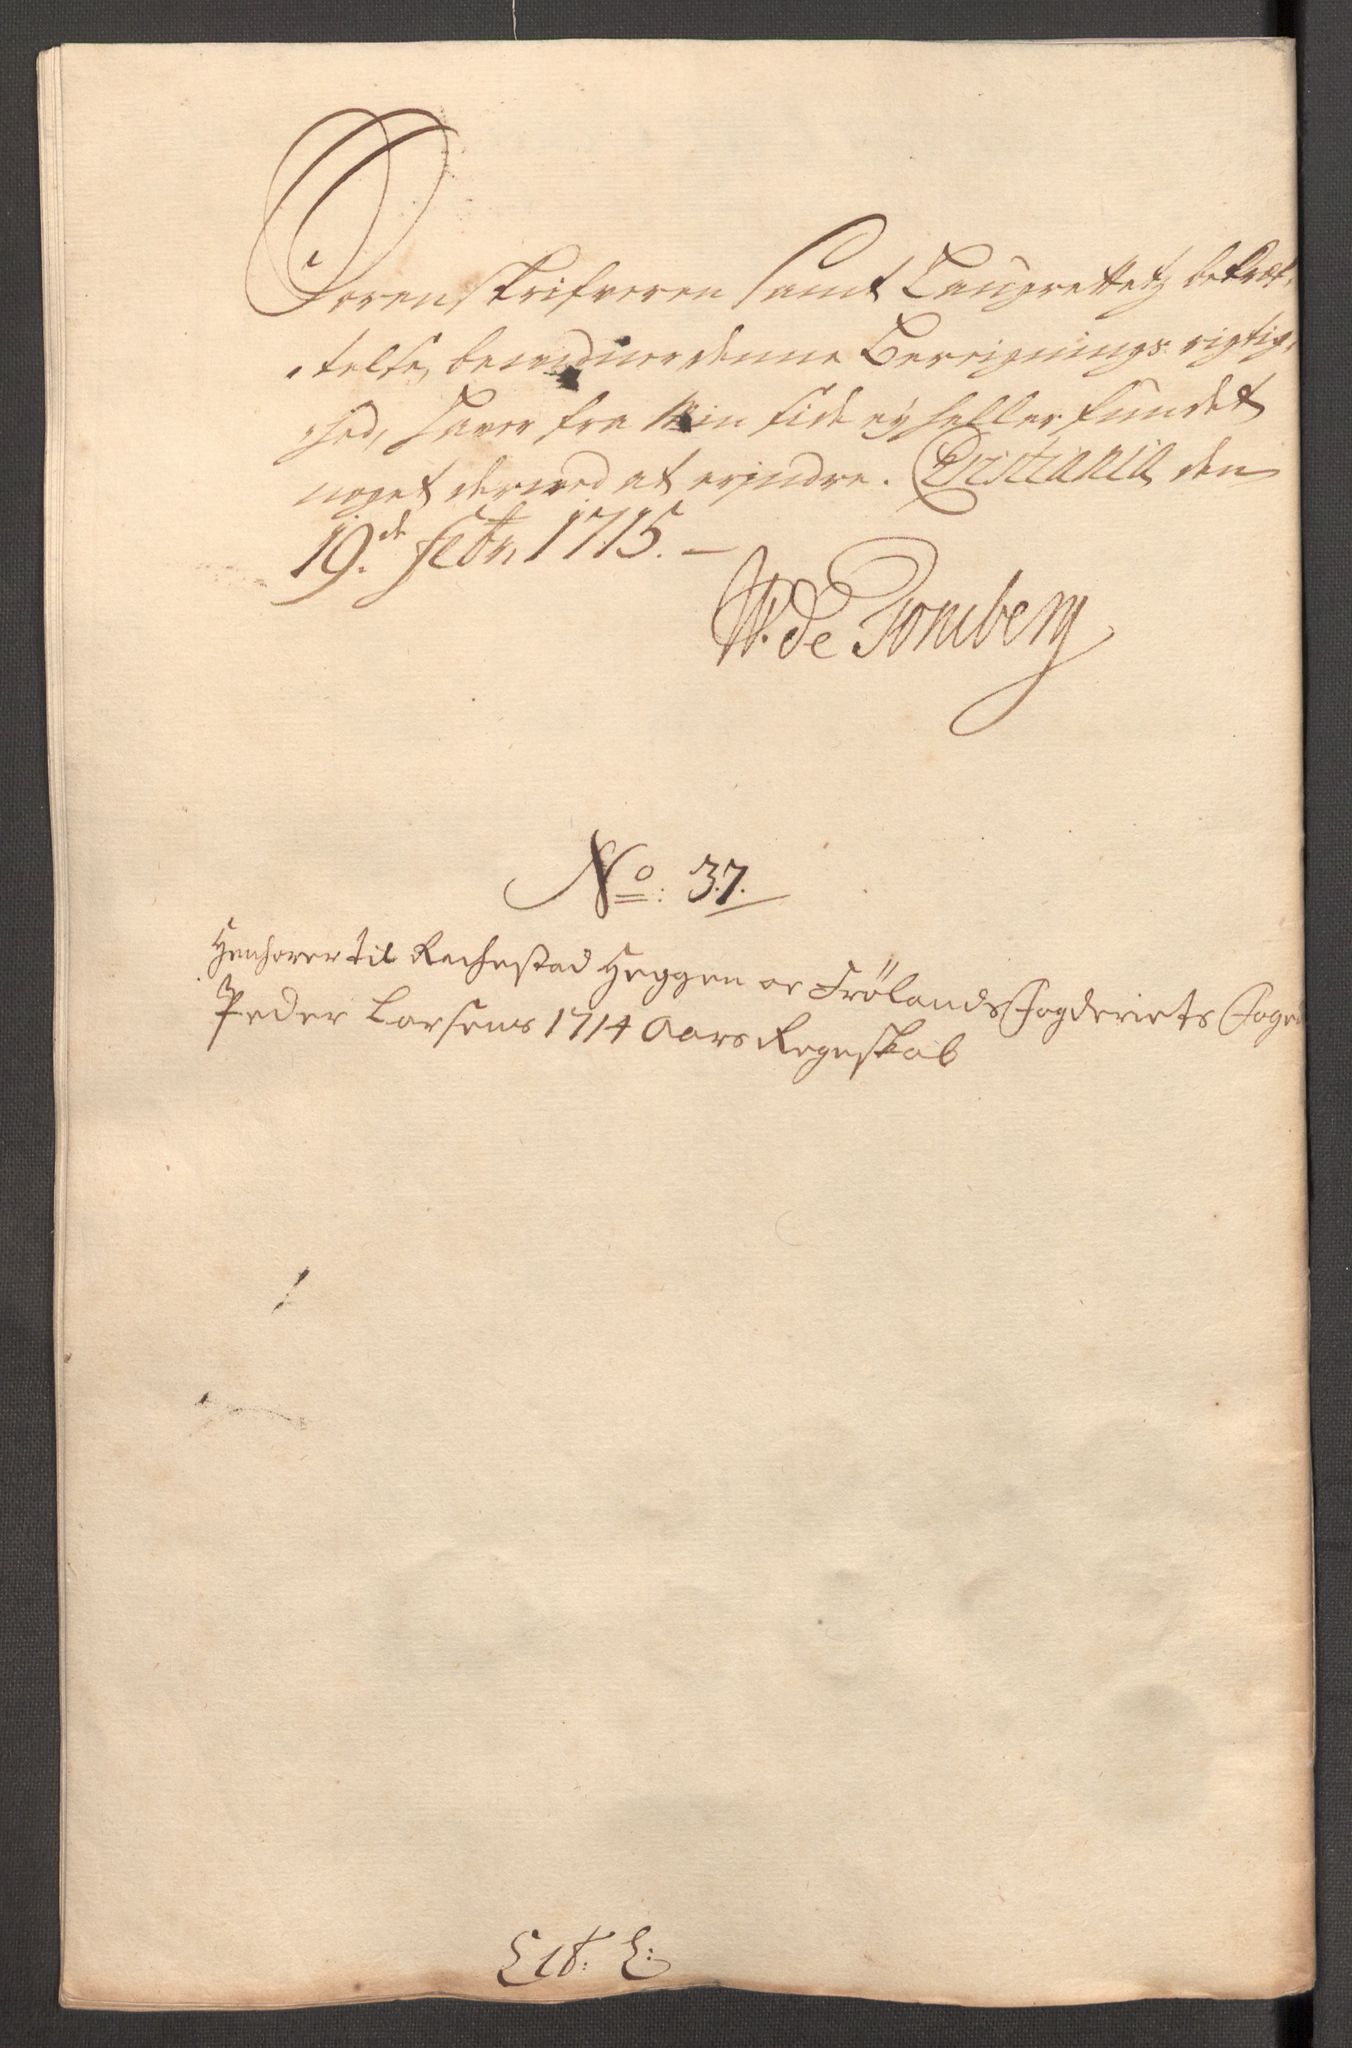 Sorenskrifveren Samt Laugrettetz bekræf-
telse, bevidner denne Beregnings rigtig-
hed, haver fra Min side ey heller fundet
noget derved at erindre. Christiania den
19.de Febr. 1715. —
W. de Tonsberg
No: 37.
Henhører til Rachestad Heggen oc Frølands Fogderiets Foged
Peder Larsens 1714 Aars Regnskab
Lit: E: